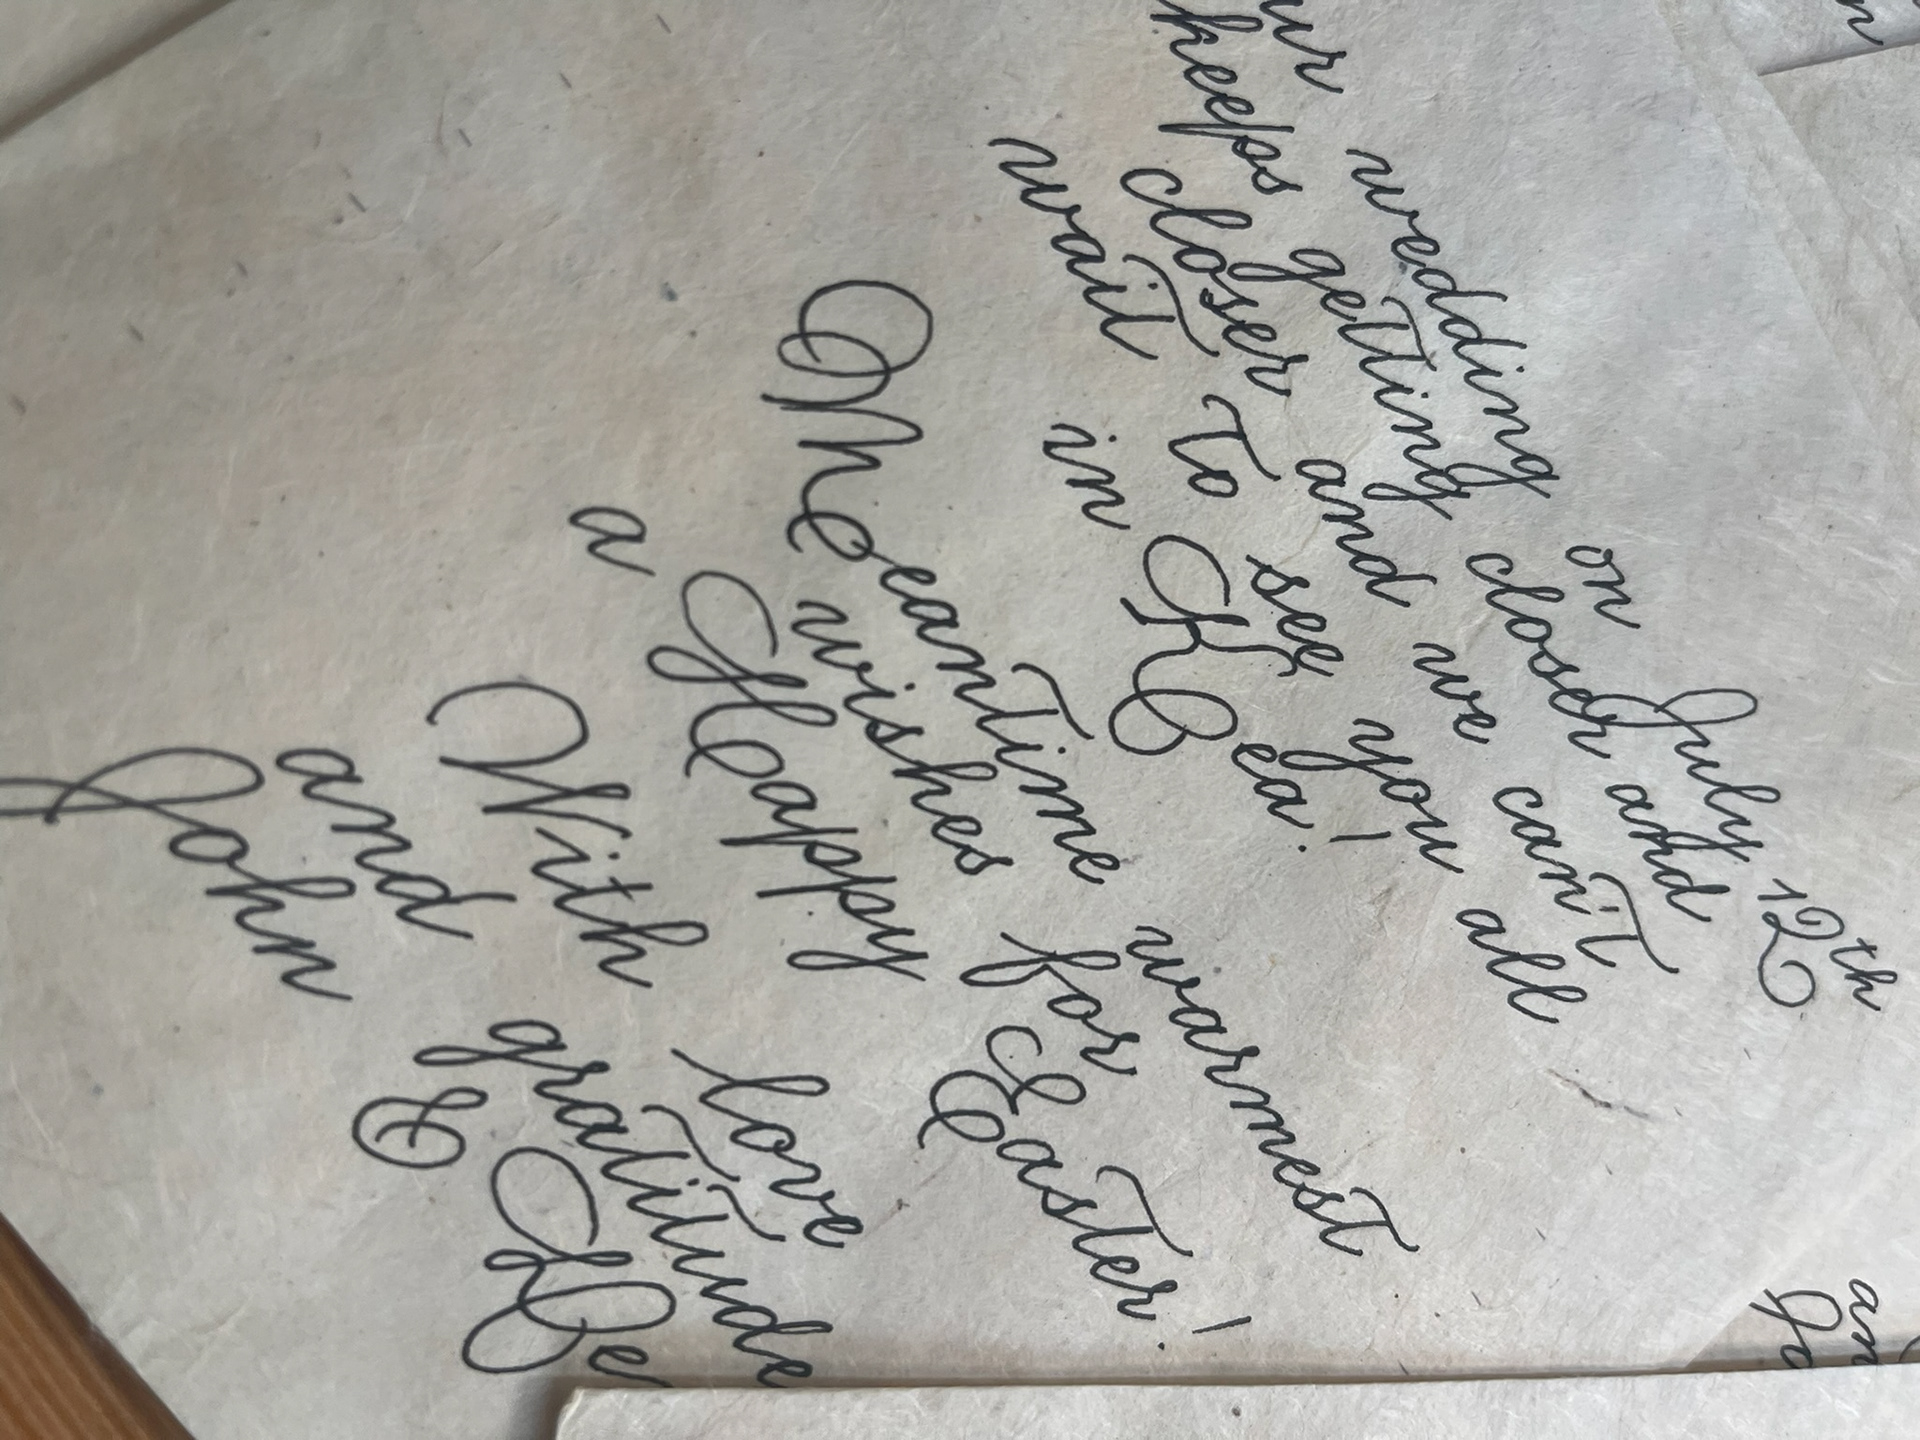 wedding on July 12th
keeps getting closer and
closer and we can't
wait to see you all
in Kea!
Meantime warmest
wishes for
a Happy Easter!
With love
and gratitude
John &